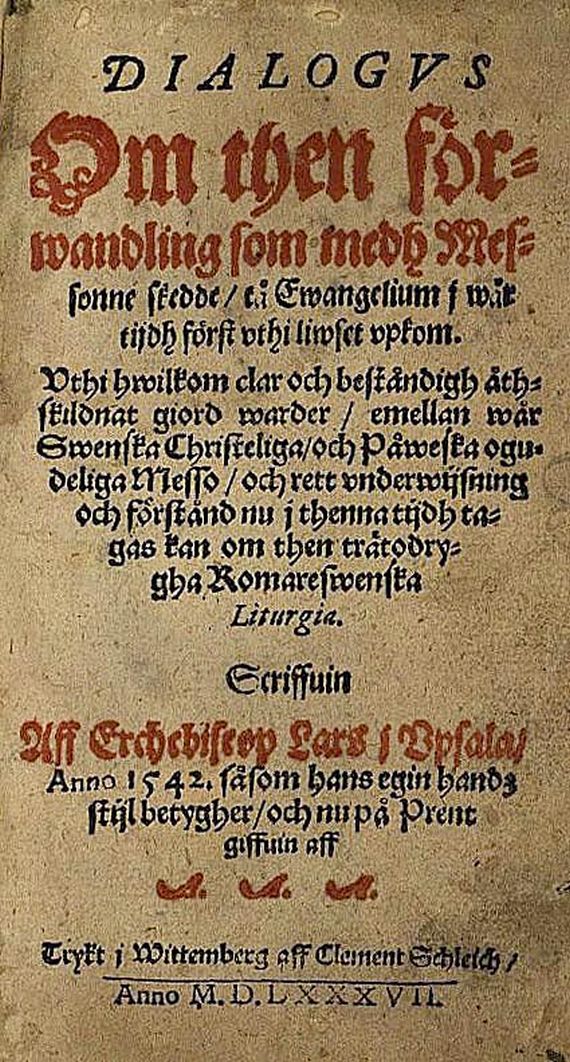 DIALOGVS
Om then för-
wandling som medh Mes-
sonne skedde / tå Ewangelium j wår
tijdh först vthi liwset vpkom.
Vthi hwilkom clar och beståndigh åth-
skildnat giord warder / emellan wår
Swenska Christeliga/och Påweska ogu-
deliga Messo / och rett vnderwijsning
och förstånd nu j thenna tijdh ta-
gas kan om then trätodry-
gha Romareswenska
Liturgia.
Scriffuin
Aff Erchebiscop Lars j Vpsala/
Anno 1542. såsom hans egin handz
stijl betygher/och nu på Prent
giffuin aff
A. A. A.
Trykt j Wittemberg aff Clement Schleich /
Anno M. D. LXXXVII.